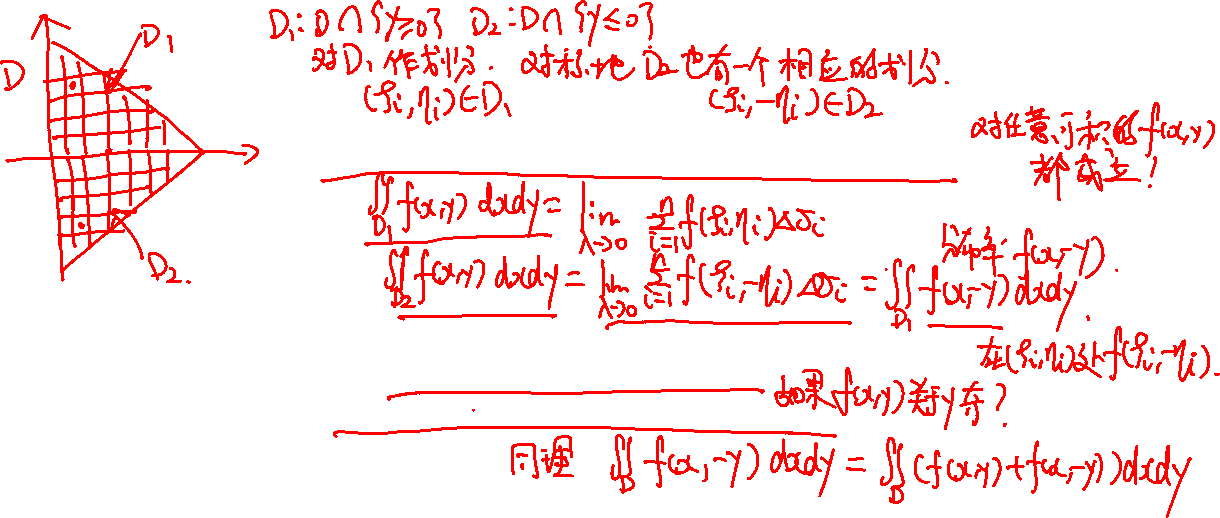 D₁:D∩{y≥0} D₂:D∩{y≤0}
D₁
D
对D₁作划分. 对称地D₂也有一个相应的划分.
(ξᵢ,ηᵢ)∈D₁ (ξᵢ,-ηᵢ)∈D₂
对任意可积的f(x,y)
都成立!
∬_{D₁} f(x,y) dxdy = lim_{λ→0} Σ_{i=1}^{n} f(ξᵢ,ηᵢ)Δσᵢ
D₂.
f(x,-y).
∬_{D₂} f(x,y) dxdy = lim_{λ→0} Σ_{i=1}^{n} f(ξᵢ,-ηᵢ)Δσᵢ = ∬_{D₁} f(x,-y) dxdy.
在(ξᵢ,ηᵢ)处f(ξᵢ,-ηᵢ).
如果f(x,y)关于y奇?
同理 ∬_D f(x,-y) dxdy = ∬_D (f(x,y)+f(x,-y))dxdy